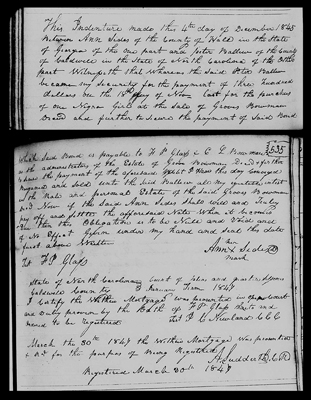 This Indenture made this 4th day of December 1845
Between Ann Sides of the County of in the State
of Georgia of the one part and Peter Ballew of the County
of Caldwell in the State of North Carolina of the other
part Witnesseth that Whereas the Said Peter Ballew
became my Security for the payment of three hundred
dollars on the 18th day of Nov last for the purchase
of one Negro Girl at the Sale of Bowman
Decd and further to Secure the payment of Said Bond
535
Which Said Bond is payable to H P Glass & Bowman
the administrators of the Estate of Bowman Decd
the payment of the aforesaid I have this day
and Sold unto the Said Ballew all My
in the Real and personal Estate of the Said Bowman
Now if the Said Ann Sides Shall Well and Truly
pay off and the aforesaid Note When it becomes
due then this Obligation is to be Null and Void and
of no Effect Given under my hand and Seal this date
first above Written
her
Ann X Sides
mark
Test H P Glass
State of North Carolina Court of pleas and quarter Sessions
Caldwell County January Term 1847
I Certify the Within Mortgage was presented in Open Court
and duly proven by the Oath of H P Glass and
to be registered
Test
March the 30th 1847 the Within Mortgage was presented
to Me for the purpose of being Registered
Registered March 30th 1847